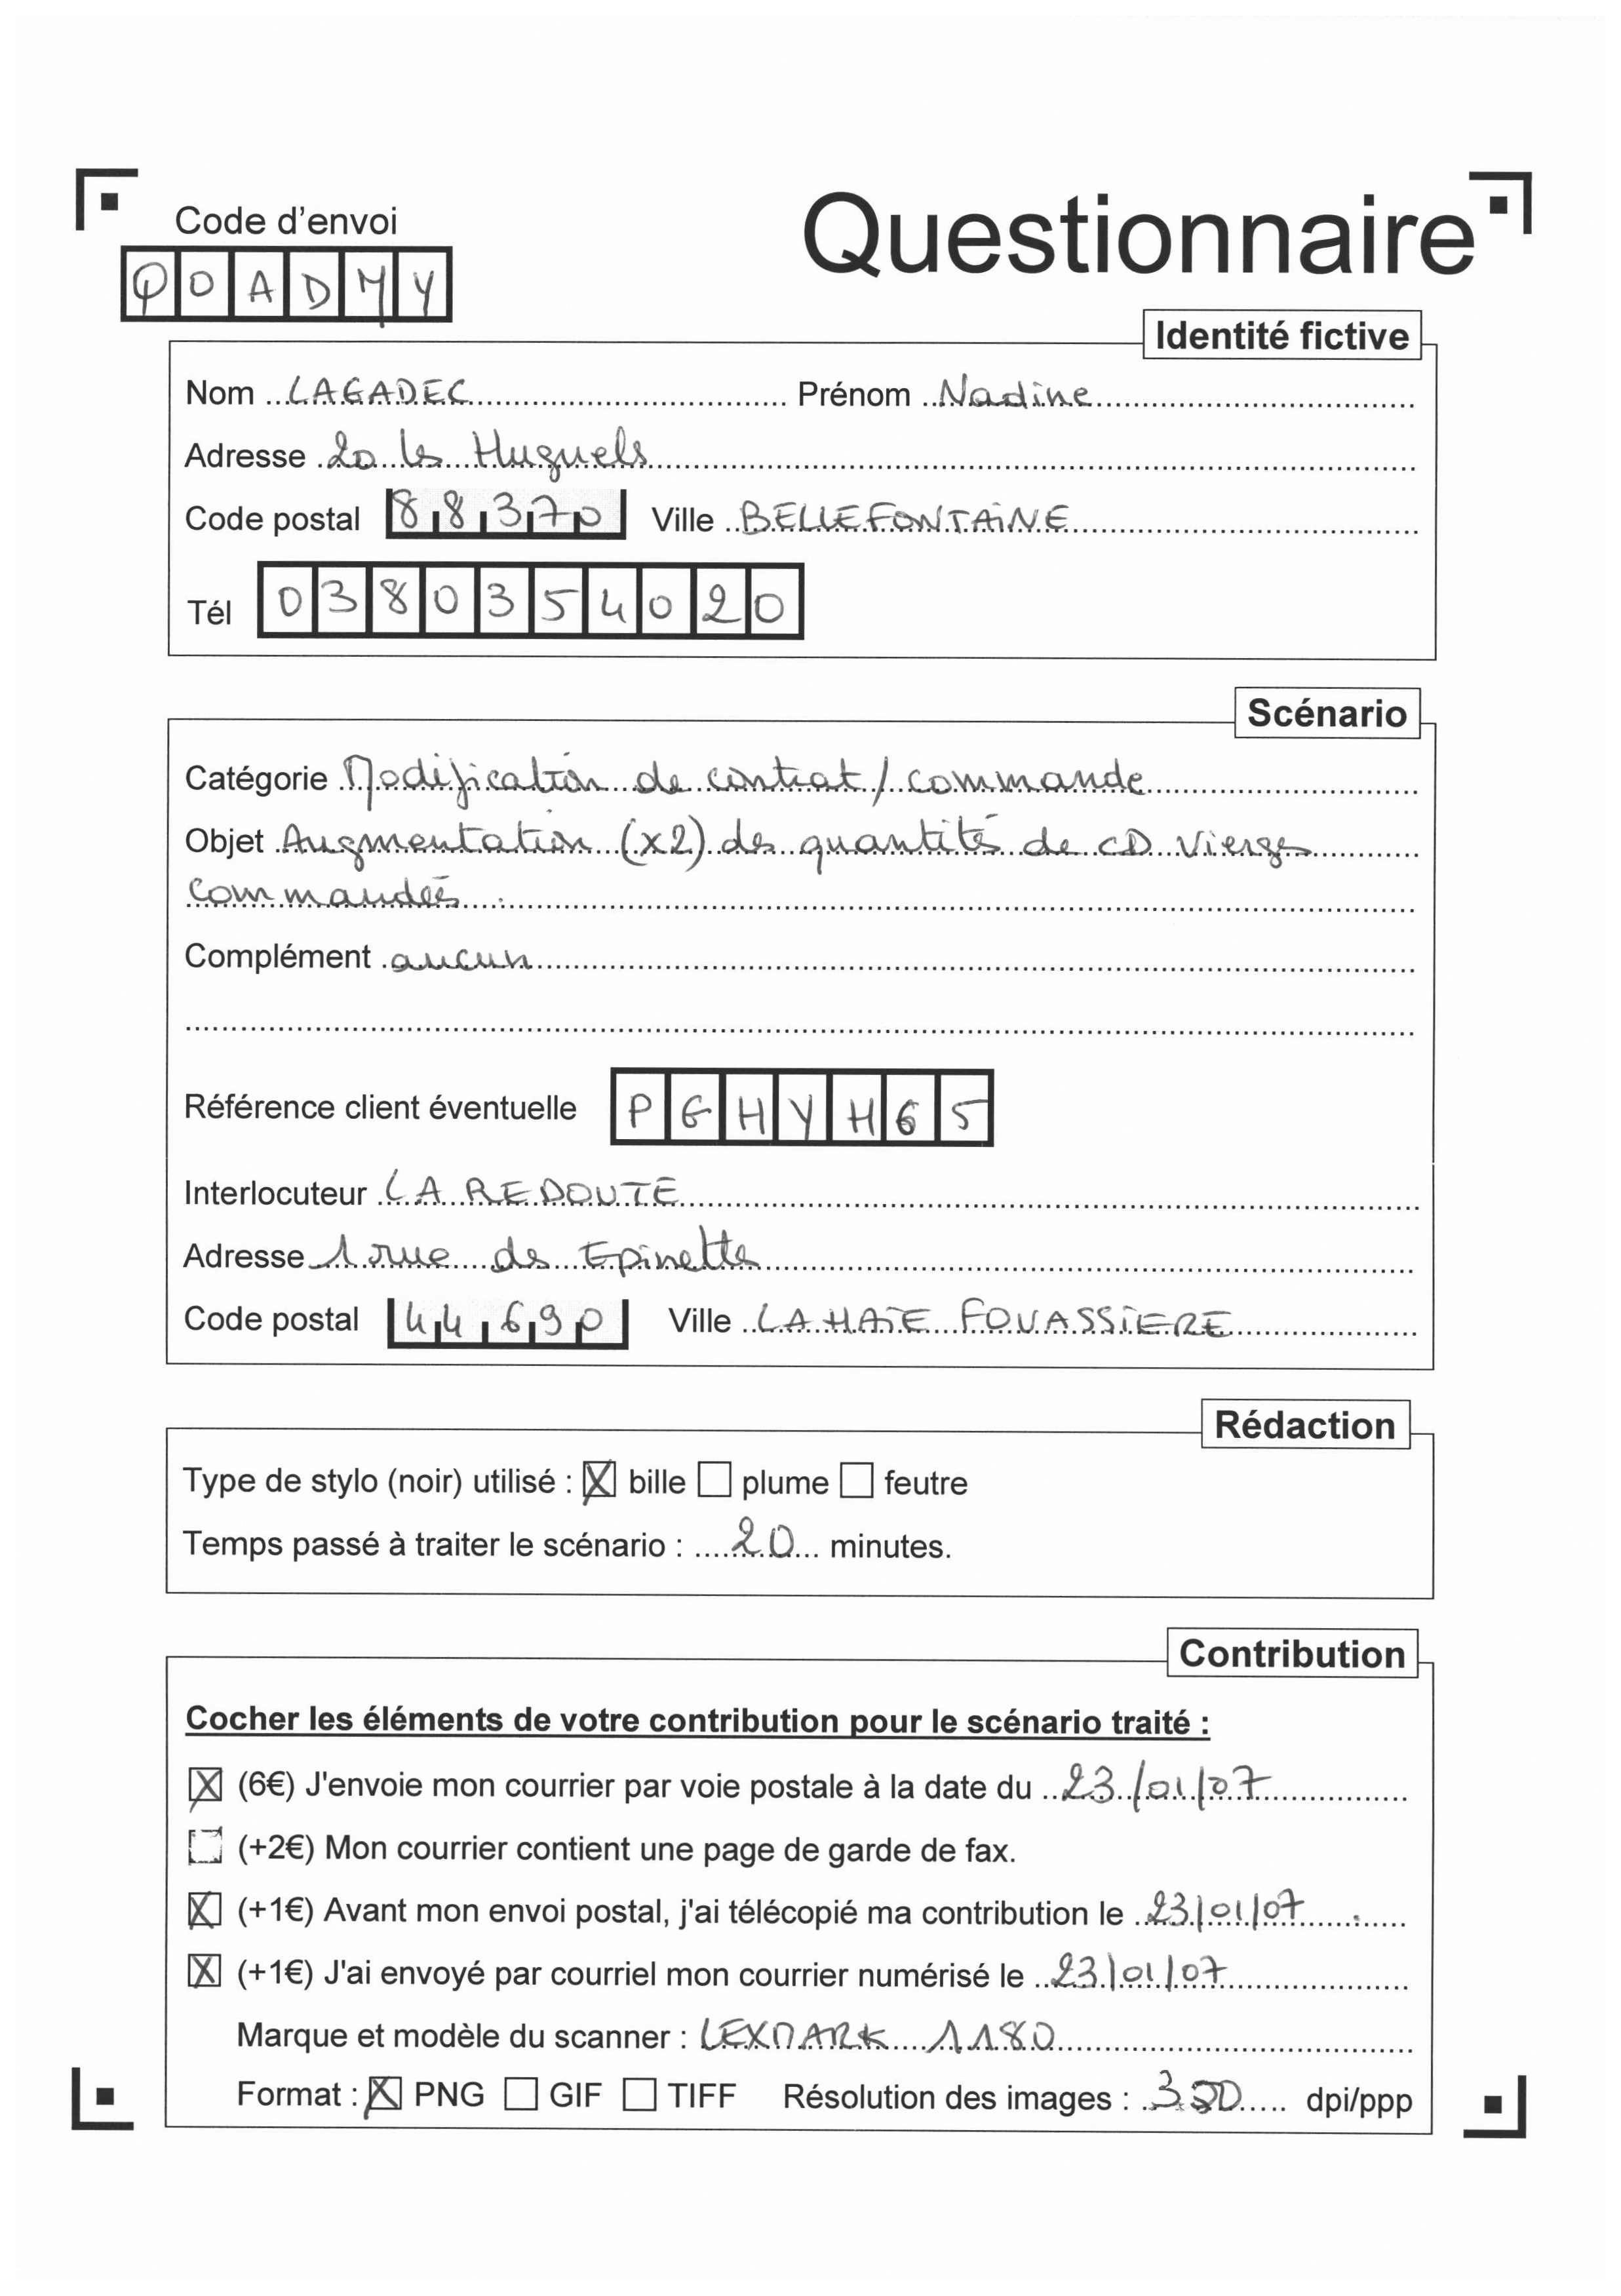 Code d'envoi
Questionnaire
QOADMY
Identité fictive
Nom LAGADEC Prénom Nadine
Adresse 20 les Huguels
Code postal 88370 Ville BELLEFONTAINE
Tél 0380354020
Scénario
Catégorie Modification de contrat / commande
Objet Augmentation (x2) des quantités de CD vierges
commandées.
Complément aucun
Référence client éventuelle PGHYH65
Interlocuteur LA REDOUTE
Adresse 1 rue des Epinettes
Code postal 44690 Ville LA HAIE FOUASSIERE
Rédaction
Type de stylo (noir) utilisé : bille plume feutre
Temps passé à traiter le scénario : 20 minutes.
Contribution
Cocher les éléments de votre contribution pour le scénario traité :
(6€) J'envoie mon courrier par voie postale à la date du 23/01/07
(+2€) Mon courrier contient une page de garde de fax.
(+1€) Avant mon envoi postal, j'ai télécopié ma contribution le 23/01/07
(+1€) J'ai envoyé par courriel mon courrier numérisé le 23/01/07
Marque et modèle du scanner : LEXMARK 1180
Format : PNG GIF TIFF Résolution des images : dpi/ppp